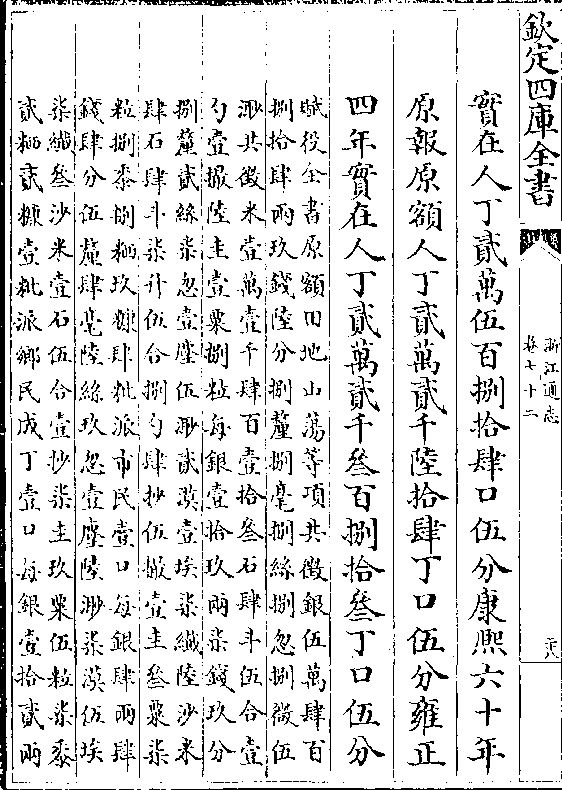 欽定四庫全書
浙江通志
卷七十二
實在人丁貳萬伍百捌拾肆口伍分康熙六十年
原報原額人丁貳萬貳千陸拾肆丁口伍分雍正
四年實在人丁貳萬貳千叁百捌拾叁丁口伍分
賦役全書原額田地山蕩等項共徵銀伍萬肆百
捌拾肆兩玖錢陸分捌釐捌毫捌絲捌忽捌微伍
渺共徵米壹萬壹千肆百壹拾叁石肆斗伍合壹
勺壹撮陸圭壹粟捌粒每銀壹拾玖兩柒錢玖分
捌釐貳絲柒忽壹塵伍渺貳漠壹埃柒纎陸沙米
肆石肆斗柒升伍合捌勺肆抄伍撮壹圭叁粟柒
粒捌黍捌粞玖糠肆粃派市民壹口每銀肆兩肆
錢肆分伍釐肆毫陸絲玖忽壹塵陸渺柒漠伍埃
柒纎叁沙米壹石伍合壹抄柒圭玖粟伍粒柒黍
貳粞貳糠壹粃派鄉民成丁壹口每銀壹拾貳兩